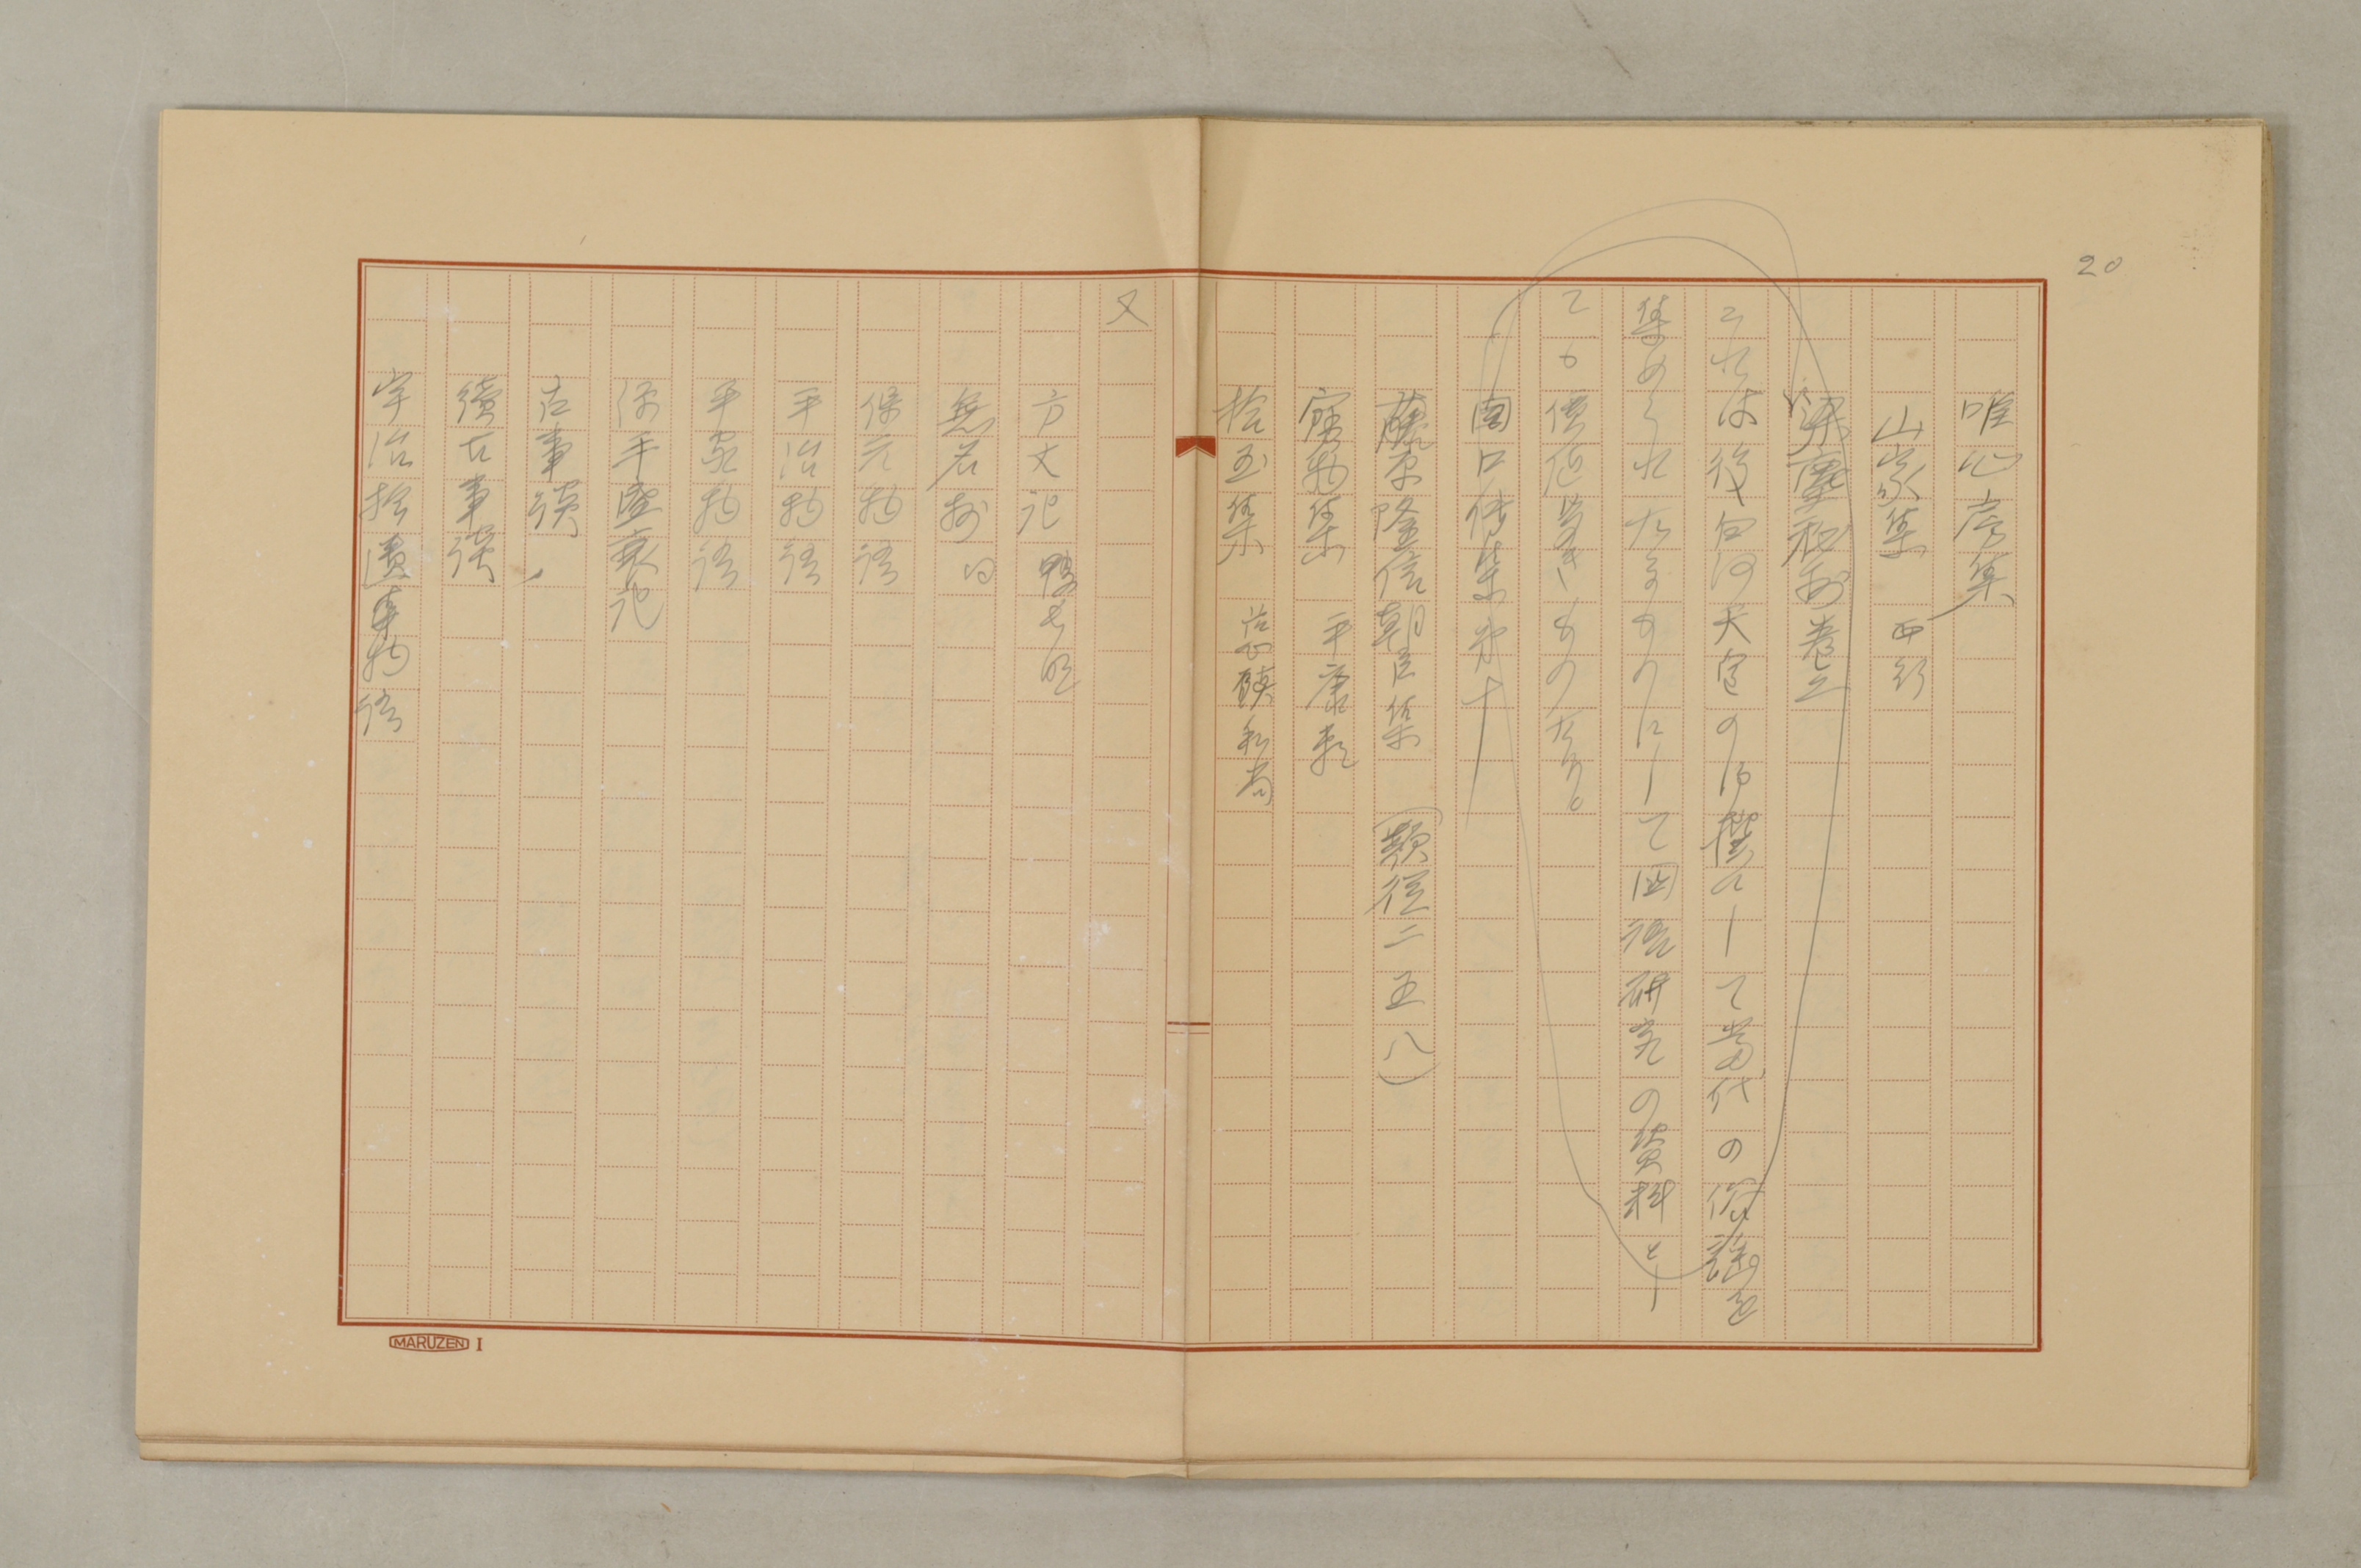 20
唯心房集
山家集 西行
梁塵秘抄巻二
これは後白河天皇の御撰にして当代の俗謡を
集められたるものにして国語研究の資料とし
ても価値多きものなり。
藤原隆信朝臣集 (類従二五八)
宝物集 平康頼
拾玉集 慈鎮和尚
又
方丈記 鴨長明
無名抄 〃
保元物語
平治物語
平家物語
源平盛衰記
古事談
続古事談
宇治拾遺物語
MARUZEN I